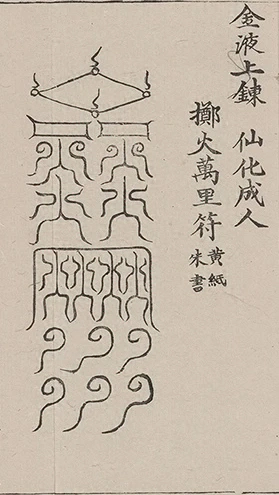 金液上鍊 仙化成人
擲火萬里符
黄紙
朱書